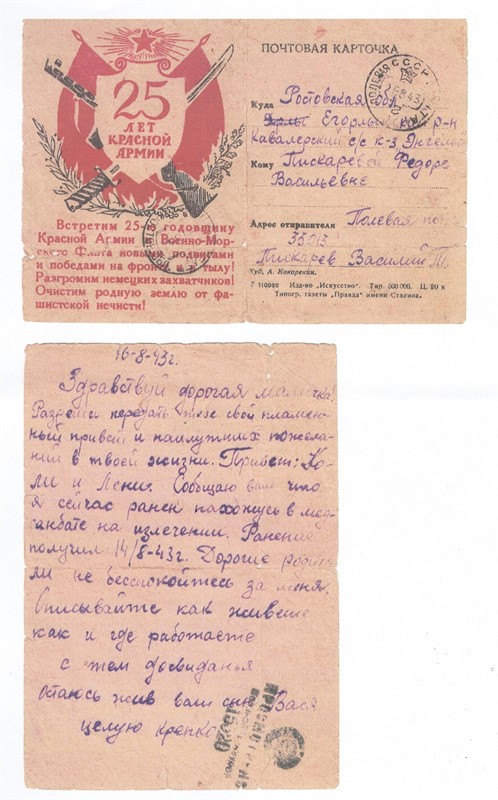 25
ЛЕТ
КРАСНОЙ
АРМИИ
Встретим 25-ю годовщину
Красной Армии и Военно-Мор-
ского Флота новыми подвигами
и победами на фронте и в тылу!
Разгромим немецких захватчиков!
Очистим родную землю от фа-
шистской нечисти!
ПОЧТОВАЯ КАРТОЧКА
Куда Ростовская обл
Егорлыкский р-н
Кавалерский с/с к-з Энгельса
Кому Пискаревой Федоре
Васильевне
Адрес отправителя Полевая
33013
Пискарев Василий Т.
Худ. А. Кокорекин.
Изд-во „Искусство". Тир. 500 000. Ц. 20 к
Типогр. газеты „Правда" имени Сталина.
16-8-43г.
Здравствуй дорогая мамочка!
Разреши передать тебе свой пламен-
ный привет и наилутших пожела-
ний в твоей жизни. Привет: Ко-
ли и Лени. Сообщаю вам что
я сейчас ранен нахожусь в мед-
санбате на излечении. Ранение
получил 14/8-43г. Дорогие родите
ли не беспокойтесь за меня.
Описывайте как живете
как и где работаете
с тем досвиданья
остаюсь жив ваш сын Вася
целую крепко
ПРОСМОТРЕНО